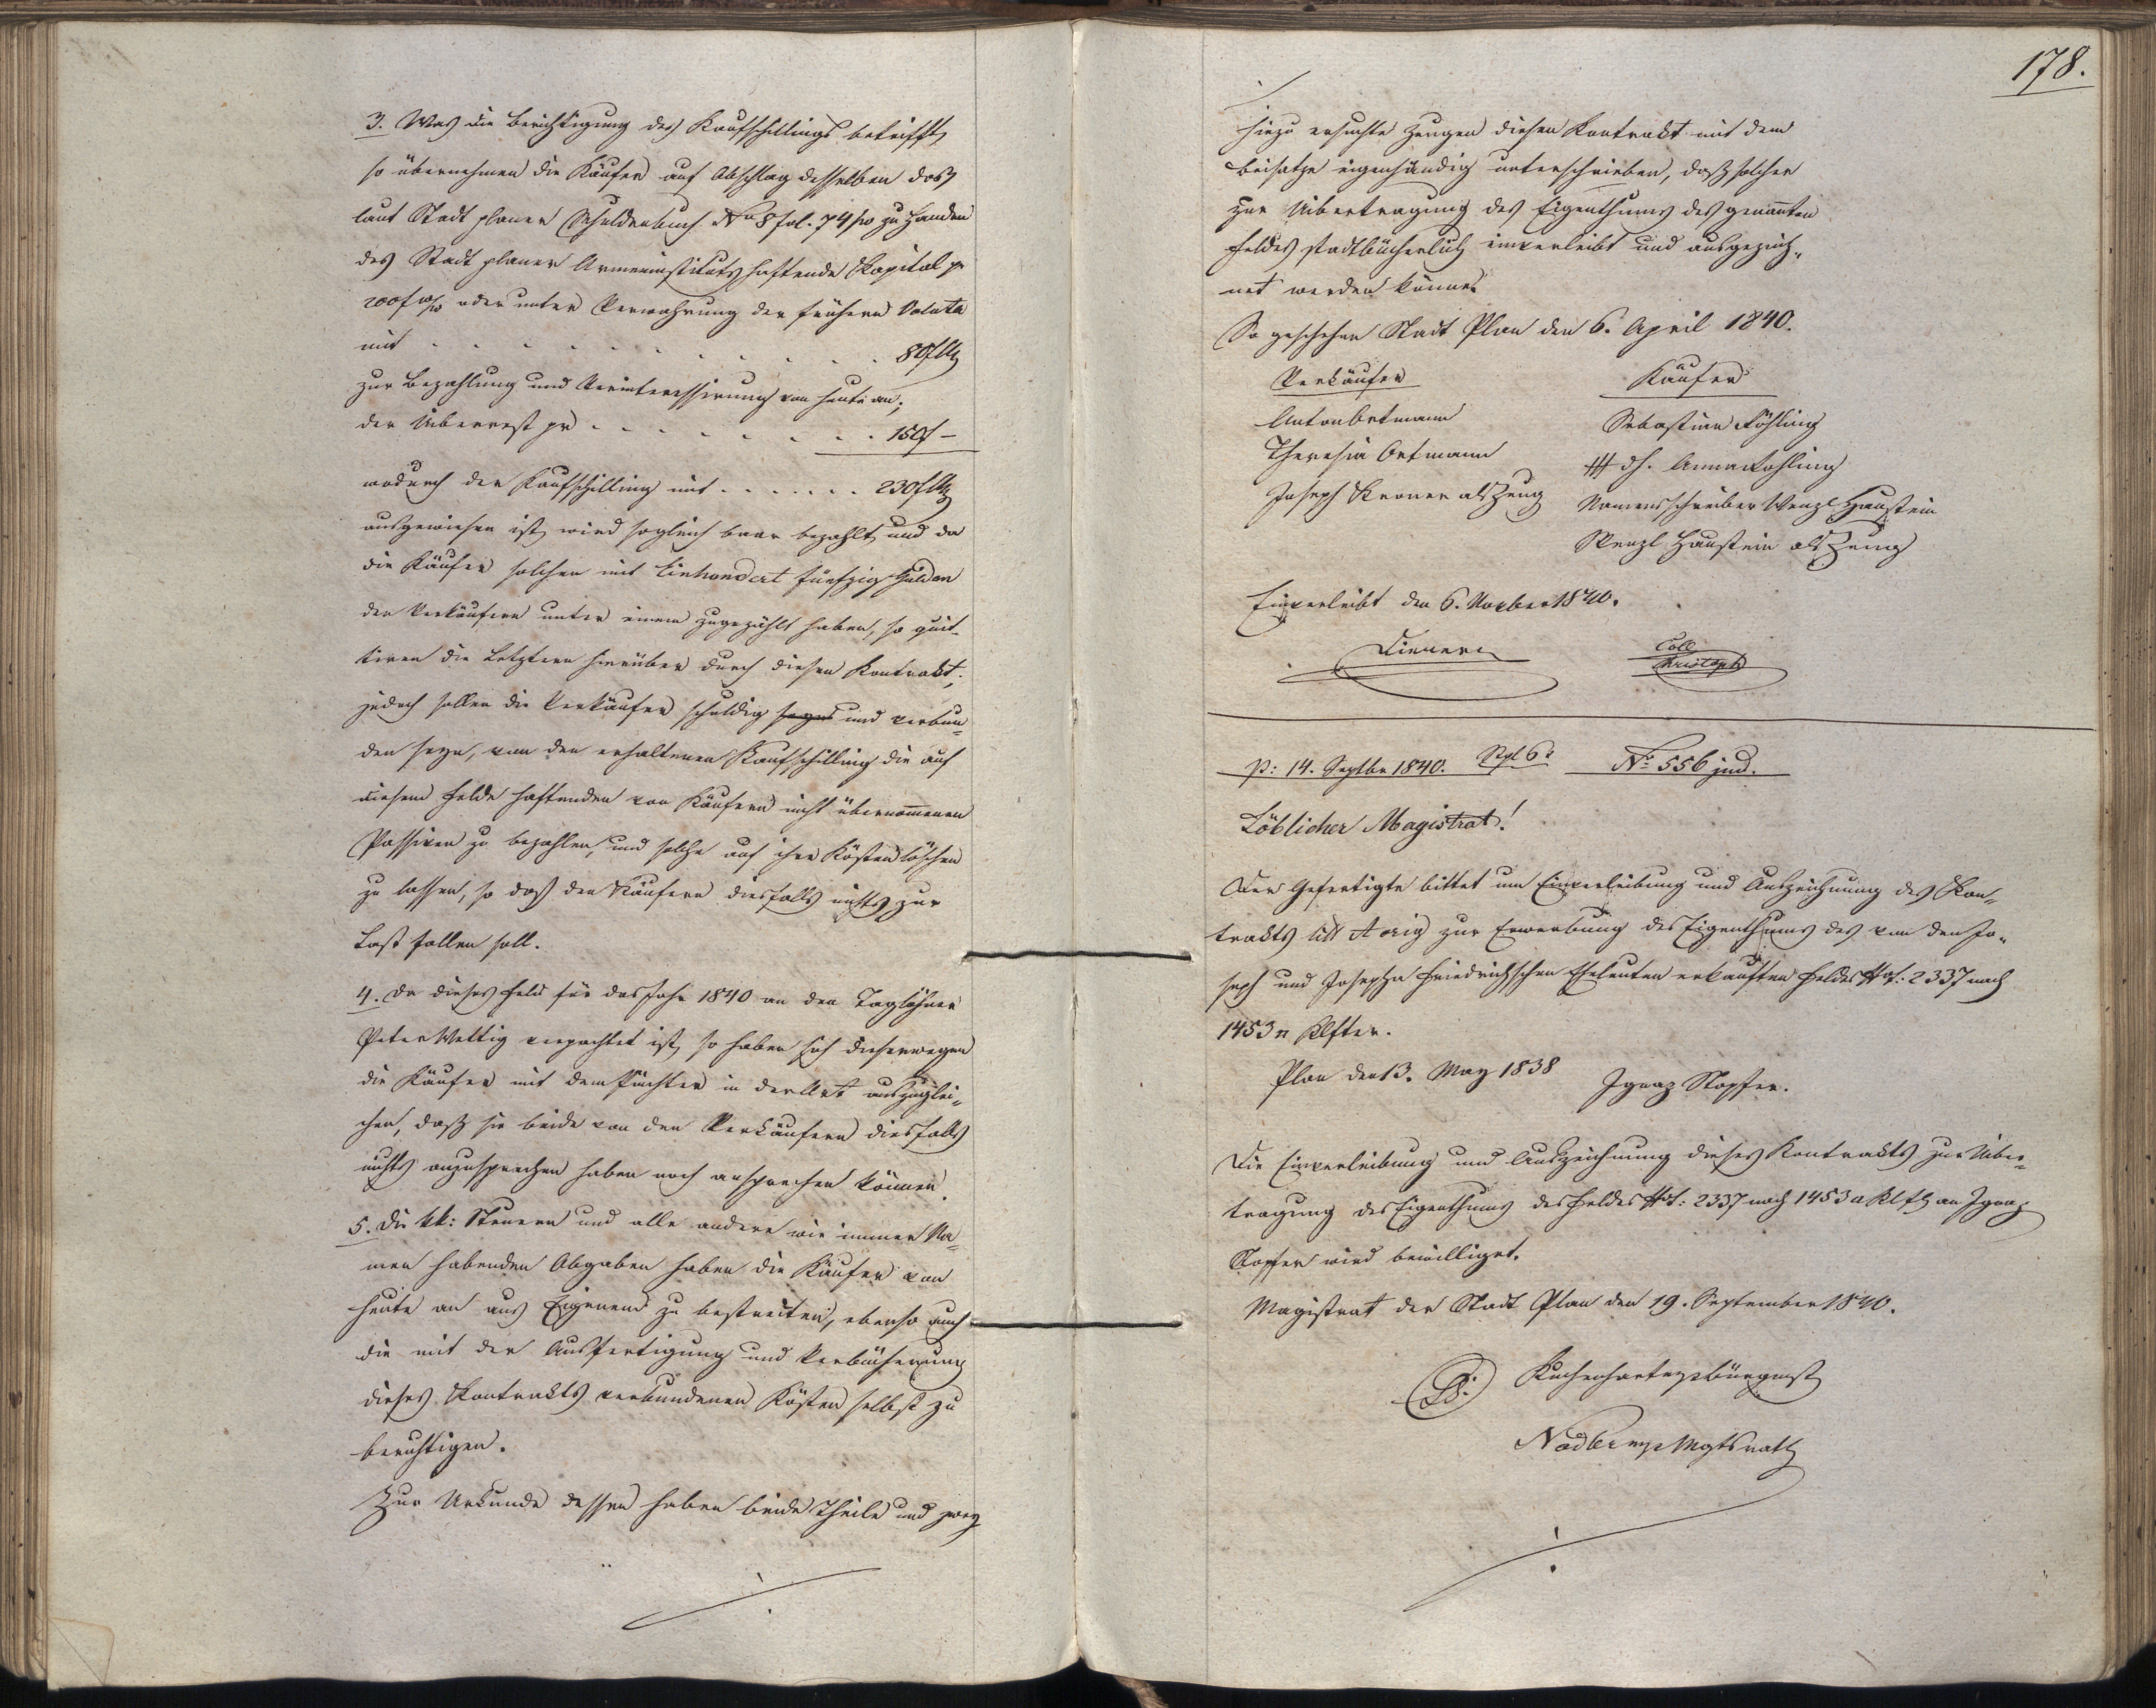 3. Was die Berichtigung des Kaufschillings betrifft,
so übernehmen die Käufer auf Abschlag desselben das
laut Stadt planer Schuldenbuch No 8 fol. 74 zu Handen
des Stadt planer Armeninstituts haftende Kapital pr
200 f oder unter Verwahrung der frühern Valuta
mit . . . . . . . . . . 80 f
zur Bezahlung und Verinteressirung von heute an;
der Uiberrest pr . . . . . . . . . 150 f –
wodurch der Kaufschilling mit . . . . . . 230 f
ausgewiesen ist, wird sogleich baar bezahlt, und da
die Käufer solchen mit Einhondert fünfzig Gulden
den Verkäufern unter einem zugezählt haben, so quit-
tiren die Letztern hierüber durch diesen Kontrakt;
jedoch sollen die Verkäufer schuldig seyn und verbun-
den seyn, von den erhaltenen Kaufschilling die auf
diesem Felde haftenden von Käufern nicht übernommenen
Passiven zu bezahlen, und solche auf ihre Kösten löschen
zu lassen, so daß den Käufern diesfalls nichts zur
Last fallen soll.
4. Da dieses Feld für das Jahr 1840 an den Taglöhner
Peter Wettig verpachtet ist, so haben sich dieserwegen
die Käufer mit dem Pächter in der Art auszuglei-
chen, daß sie beide von den Verkäufern diesfalls
nichts anzusprechen haben noch ansprechen können.
5. Die kk: Steuern und alle andere wie immer Na-
men habenden Abgaben haben die Käufer von
heute an aus Eigenem zu bestreiten, ebenso auch
die mit der Ausfertigung und Verbücherung
dieses Kontrakts verbundenen Kösten selbst zu
berichtigen.
Zur Urkunde dessen haben beide Theile und zwey
178.
hiezu ersuchte Zeugen diesen Kontrakt mit dem
Beisatze eigenhändig unterschrieben, daß solcher
zur Uibertragung des Eigenthums des genannten
Feldes stadtbücherlich einverleibt und ausgezeich-
net werden könne.
So geschehen Stadt Plan den 6. April 1840.
Verkäufer Käufer
Anton Ortmann Sebastian Köhling
Theresia Ortmann ### dh. Anna Köhling
Joseph Kroner als Zeug Namensschreiber Wenzl Haustein
Wenzl Haustein als Zeug
Einverleibt den 6. November 1840.
Coll
Christoph
p: 14. Septbr 1840. Stpl 6 x No 556 jud.
Löblicher Magistrat!
Der Gefertigte bittet um Einverleibung und Auszeichnung des Kon-
trakts litt A orig zur Erwerbung des Eigenthums des von den Jo-
seph und Josepha Friedrichschen Eheleuten erkauften Feldes Top: 2337 nach
1453 □ Klfter.
Plan den 13. May 1838
Ignaz Stopfer.
Die Einverleibung und Auszeichnung dieses Kontrakts zur Uiber-
tragung des Eigenthums des Feldes Top: 2337 nach 1453 □ Klft an Ignaz
Stopfer wird bewilliget.
Magistrat der Stadt Plan den 19. September 1840.
Kuchenhart mp Bürgmst
Nadler mp Mgtsrath